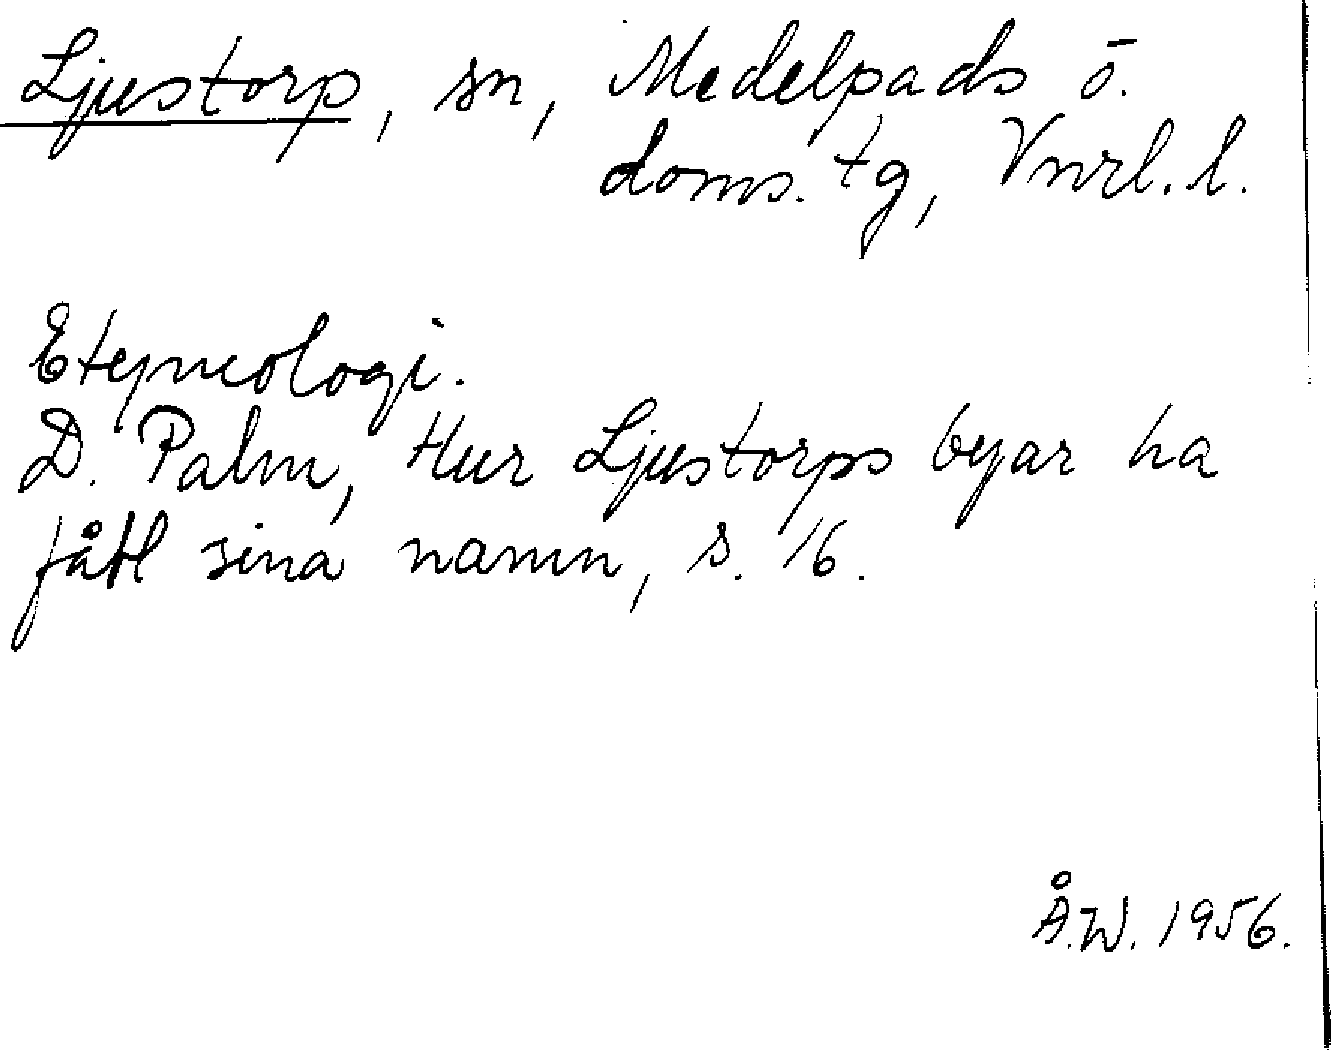 Ljustorp, sn, Medelpads ö.
doms. tg, Vnrl. l.
Etymologi.
D. Palm, Hur Ljustorps byar ha
fått sina namn, s. 16.
Å.W. 1956.